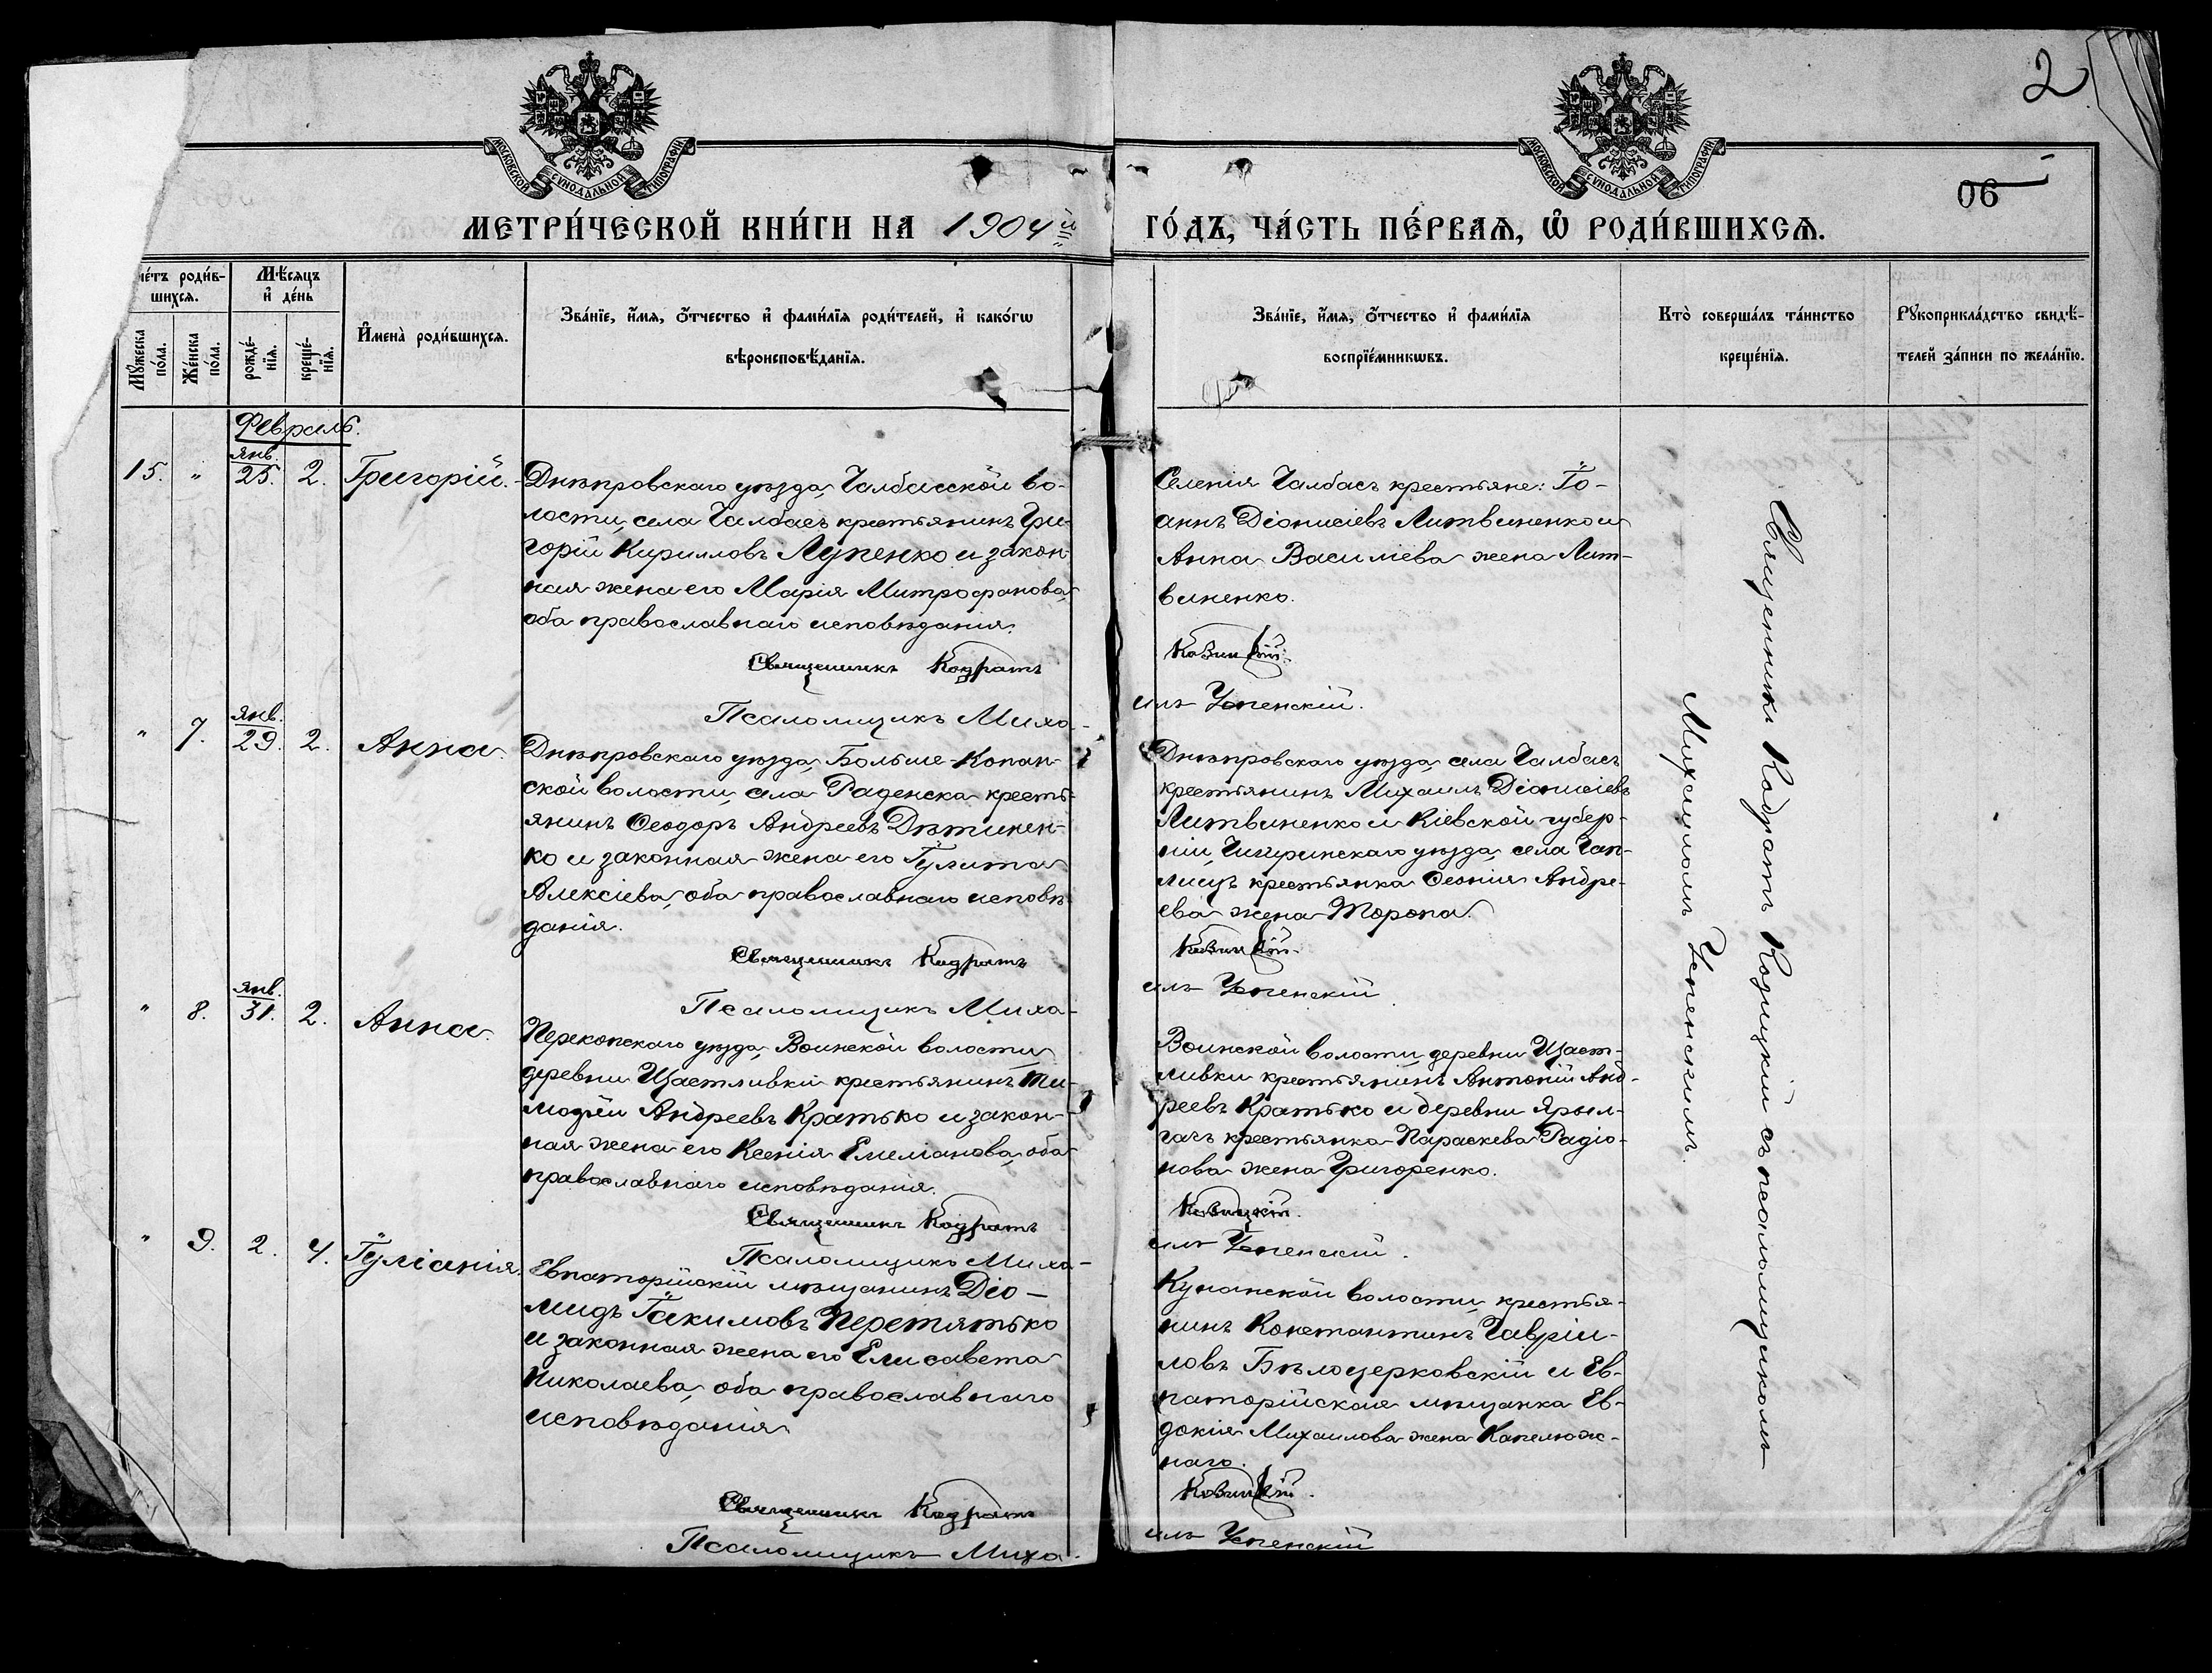 2
06
МОСКОВСКОЙ СѴНОДАЛЬНОЙ ТИПОГРАФІИ
МОСКОВСКОЙ СѴНОДАЛЬНОЙ ТИПОГРАФІИ
МЕТРИ́ЧЕСКОЙ КНИ́ГИ НА 1904й ГО́ДЪ, ЧА́СТЬ ПЕ́РВАѦ, Ѿ РОДИ́ВШИХСѦ.
че́тъ роди́в-
шихсѧ.
Мꙋжеска по́ла.
Же́нска по́ла.
Мѣ́сѧцъ
и҆ де́нь
рожде́-
нїѧ.
креще́-
нїѧ.
И҆мена̀ роди́вшихсѧ.
Зва́нїе, и҆́мѧ, ѻ҆́тчество и҆ фами́лїѧ роди́телей, и҆ како́гѡ
вѣроисповѣ́данїѧ.
Зва́нїе, и҆́мѧ, ѻ҆́тчество и҆ фами́лїѧ
воспрїе́мникѡвъ.
Кто̀ соверша́лъ та́инство
креще́нїѧ.
Рꙋкоприкла́дство свидѣ́-
телей за́писи по жела́нїю.
Февраль.
15. " янв. 25. 2. Григорій.
Днѣпровскаго уѣзда, Чалбасской во-
лости, села Чалбасъ крестьянинъ Гри-
горій Кирилловъ Лупенко и закон-
ная жена его Марія Митрофанова,
оба православнаго исповѣданія.
Священникъ Кодратъ
Псаломщикъ Миха-
Селенія Чалбасъ крестьяне: Іо-
аннъ Діонисіевъ Литвиненко и
Анна Василіева жена Лит-
виненко.
Козицкій.
илъ Успенскій.
" 7. янв. 29. 2. Анна.
Днѣпровскаго уѣзда, Больше-Копан-
ской волости, села Раденска кресть-
янинъ Ѳеодоръ Андреевъ Дѣтинен-
ко и законная жена его Іулита
Алексіева, оба православнаго исповѣ-
данія.
Священникъ Кодратъ
Псаломщикъ Миха-
Днѣпровскаго уѣзда, села Чалбасъ
крестьянинъ Михаилъ Діонисіевъ
Литвиненко и Кіевской губер-
ніи, Чигиринскаго уѣзда, села Чап-
лищъ крестьянка Ѳеонія Андре-
ева жена Торопа.
Козицкій.
илъ Успенскій
" 8. янв. 31. 2. Анна.
Перекопскаго уѣзда, Воинской волости
деревни Щастливки крестьянинъ Ти-
моѳей Андреевъ Кратько и закон-
ная жена его Ксенія Емеліанова, оба
православнаго исповѣданія.
Священникъ Кодратъ
Псаломщикъ Миха-
Воинской волости, деревни Щаст-
ливки крестьянинъ Антоній Анд-
реевъ Кратько и деревни Ярыл-
гачъ крестьянка Параскева Радіо-
нова жена Григоренко.
Козицкій.
илъ Успенскій.
" 9. 2. 4. Іуліанія.
Евпаторійскій мѣщанинъ Діо-
мидъ Іакимовъ Перетятько
и законная жена его Елисавета
Николаева, оба православнаго
исповѣданія
Священникъ Кодратъ
Псаломщикъ Миха-
Кунанской волости, крестья-
нинъ Константинъ Гавріи-
ловъ Бѣлоцерковскій и Ев-
паторійская мѣщанка Ев-
докія Михаилова жена Капелюж-
наго.
Козицкій.
илъ Успенскій
Священникъ Кодратъ Козицкій съ псаломщикомъ
Михаиломъ Успенскимъ.